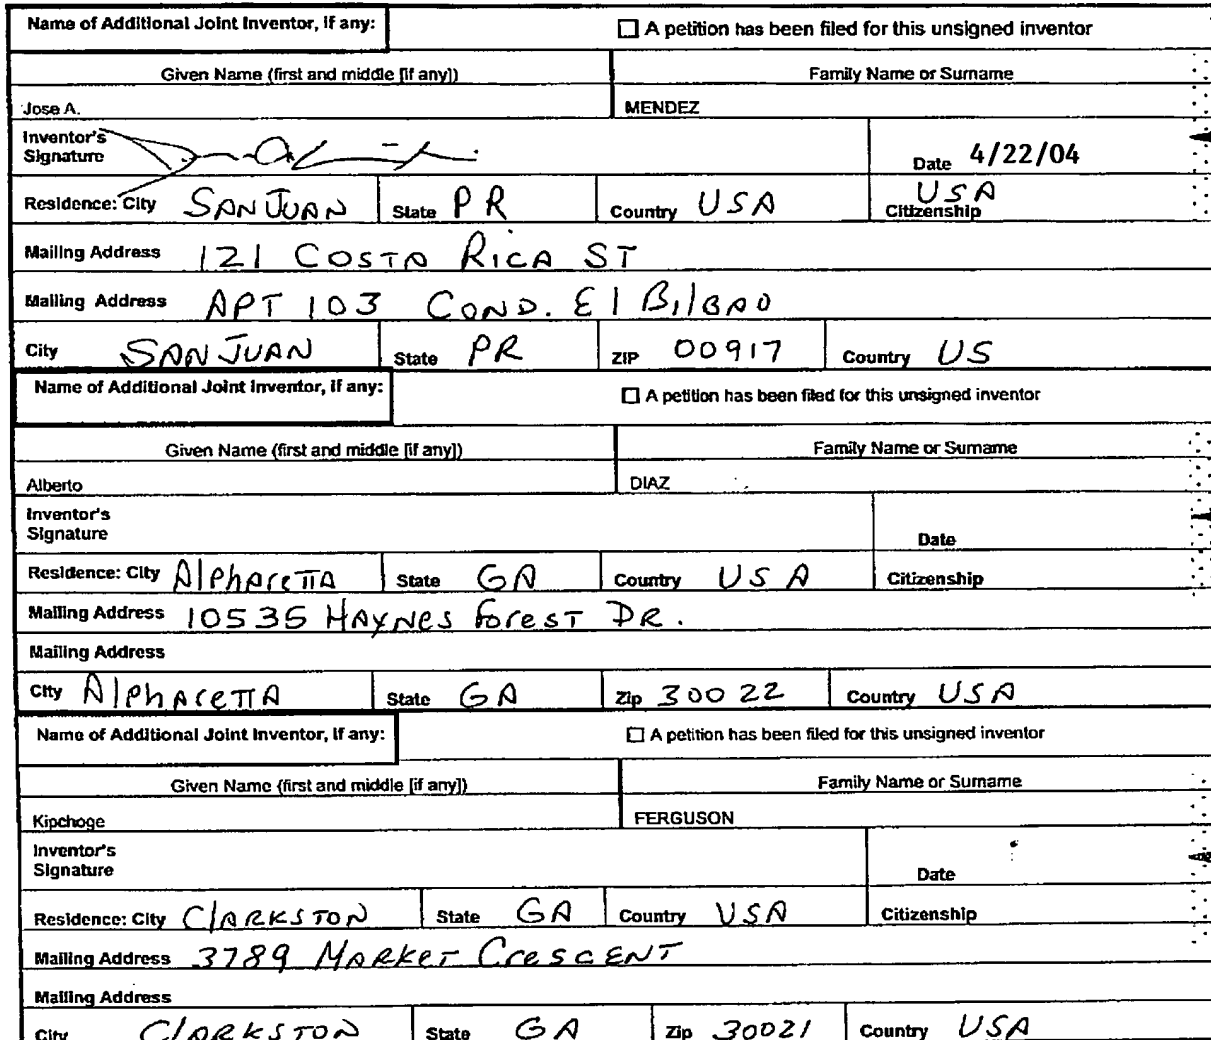 Name of Additional Joint Inventor, if any: ☐ A petition has been filed for this unsigned inventor
Given Name (first and middle [if any]) Family Name or Surname
Jose A. MENDEZ
Inventor's
Signature Date 4/22/04
Residence: City SAN JUAN State PR Country USA Citizenship USA
Mailing Address 121 COSTA RICA ST
Mailing Address APT 103 COND. El BilBAO
City SAN JUAN State PR ZIP 00917 Country US
Name of Additional Joint Inventor, if any: ☐ A petition has been filed for this unsigned inventor
Given Name (first and middle [if any]) Family Name or Surname
Alberto DIAZ
Inventor's
Signature Date
Residence: City AlphAreTTA State GA Country USA Citizenship
Mailing Address 10535 HAYNes ForesT DR.
Mailing Address
City AlphAreTTA State GA Zip 30022 Country USA
Name of Additional Joint Inventor, if any: ☐ A petition has been filed for this unsigned inventor
Given Name (first and middle [if any]) Family Name or Surname
Kipchoge FERGUSON
Inventor's
Signature Date
Residence: City ClARKSTON State GA Country USA Citizenship
Mailing Address 3789 MARKeT CresCENT
Mailing Address
City ClARKSTON State GA Zip 30021 Country USA